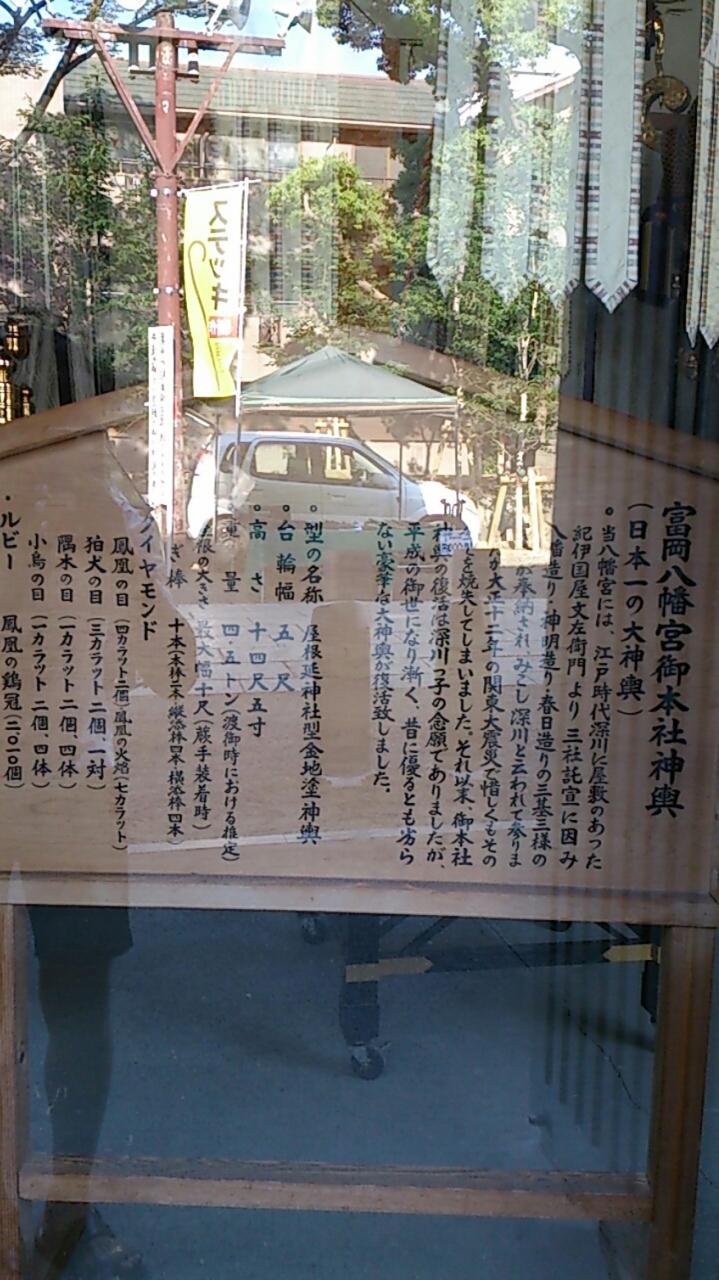 富岡八幡宮御本社神輿
(日本一の大神輿)
。当八幡宮には、江戸時代深川に屋敷のあった
紀伊国屋文左衛門より三社託宣に因み
八幡造り・神明造り・春日造りの三基三様の
が奉納され、みこし深川と云われて参りま
が大正十二年の関東大震災で惜しくもその
を焼失してしまいました。それ以来、御本社
神輿の復活は深川っ子の念願でありましたが、
平成の御世になり漸く、昔に優るとも劣ら
ない豪華な大神輿が復活致しました。
。型の名称 屋根延神社型金地塗神輿
。台輪幅 五尺
。高さ 十四尺五寸
。重量 四・五トン(渡御時における推定)
屋根の大きさ 最大幅十尺(蕨手装着時)
ぎ棒 十本(本棒二本 縦添棒四本 横添棒四本)
ダイヤモンド
鳳凰の目(四カラット二個)鳳凰の火焔(七カラット)
狛犬の目(三カラット二個、一対)
隅木の目(一カラット二個、四体)
小鳥の目(一カラット二個、四体)
・ルビー 鳳凰の鶏冠(二〇一〇個)
ステッキ